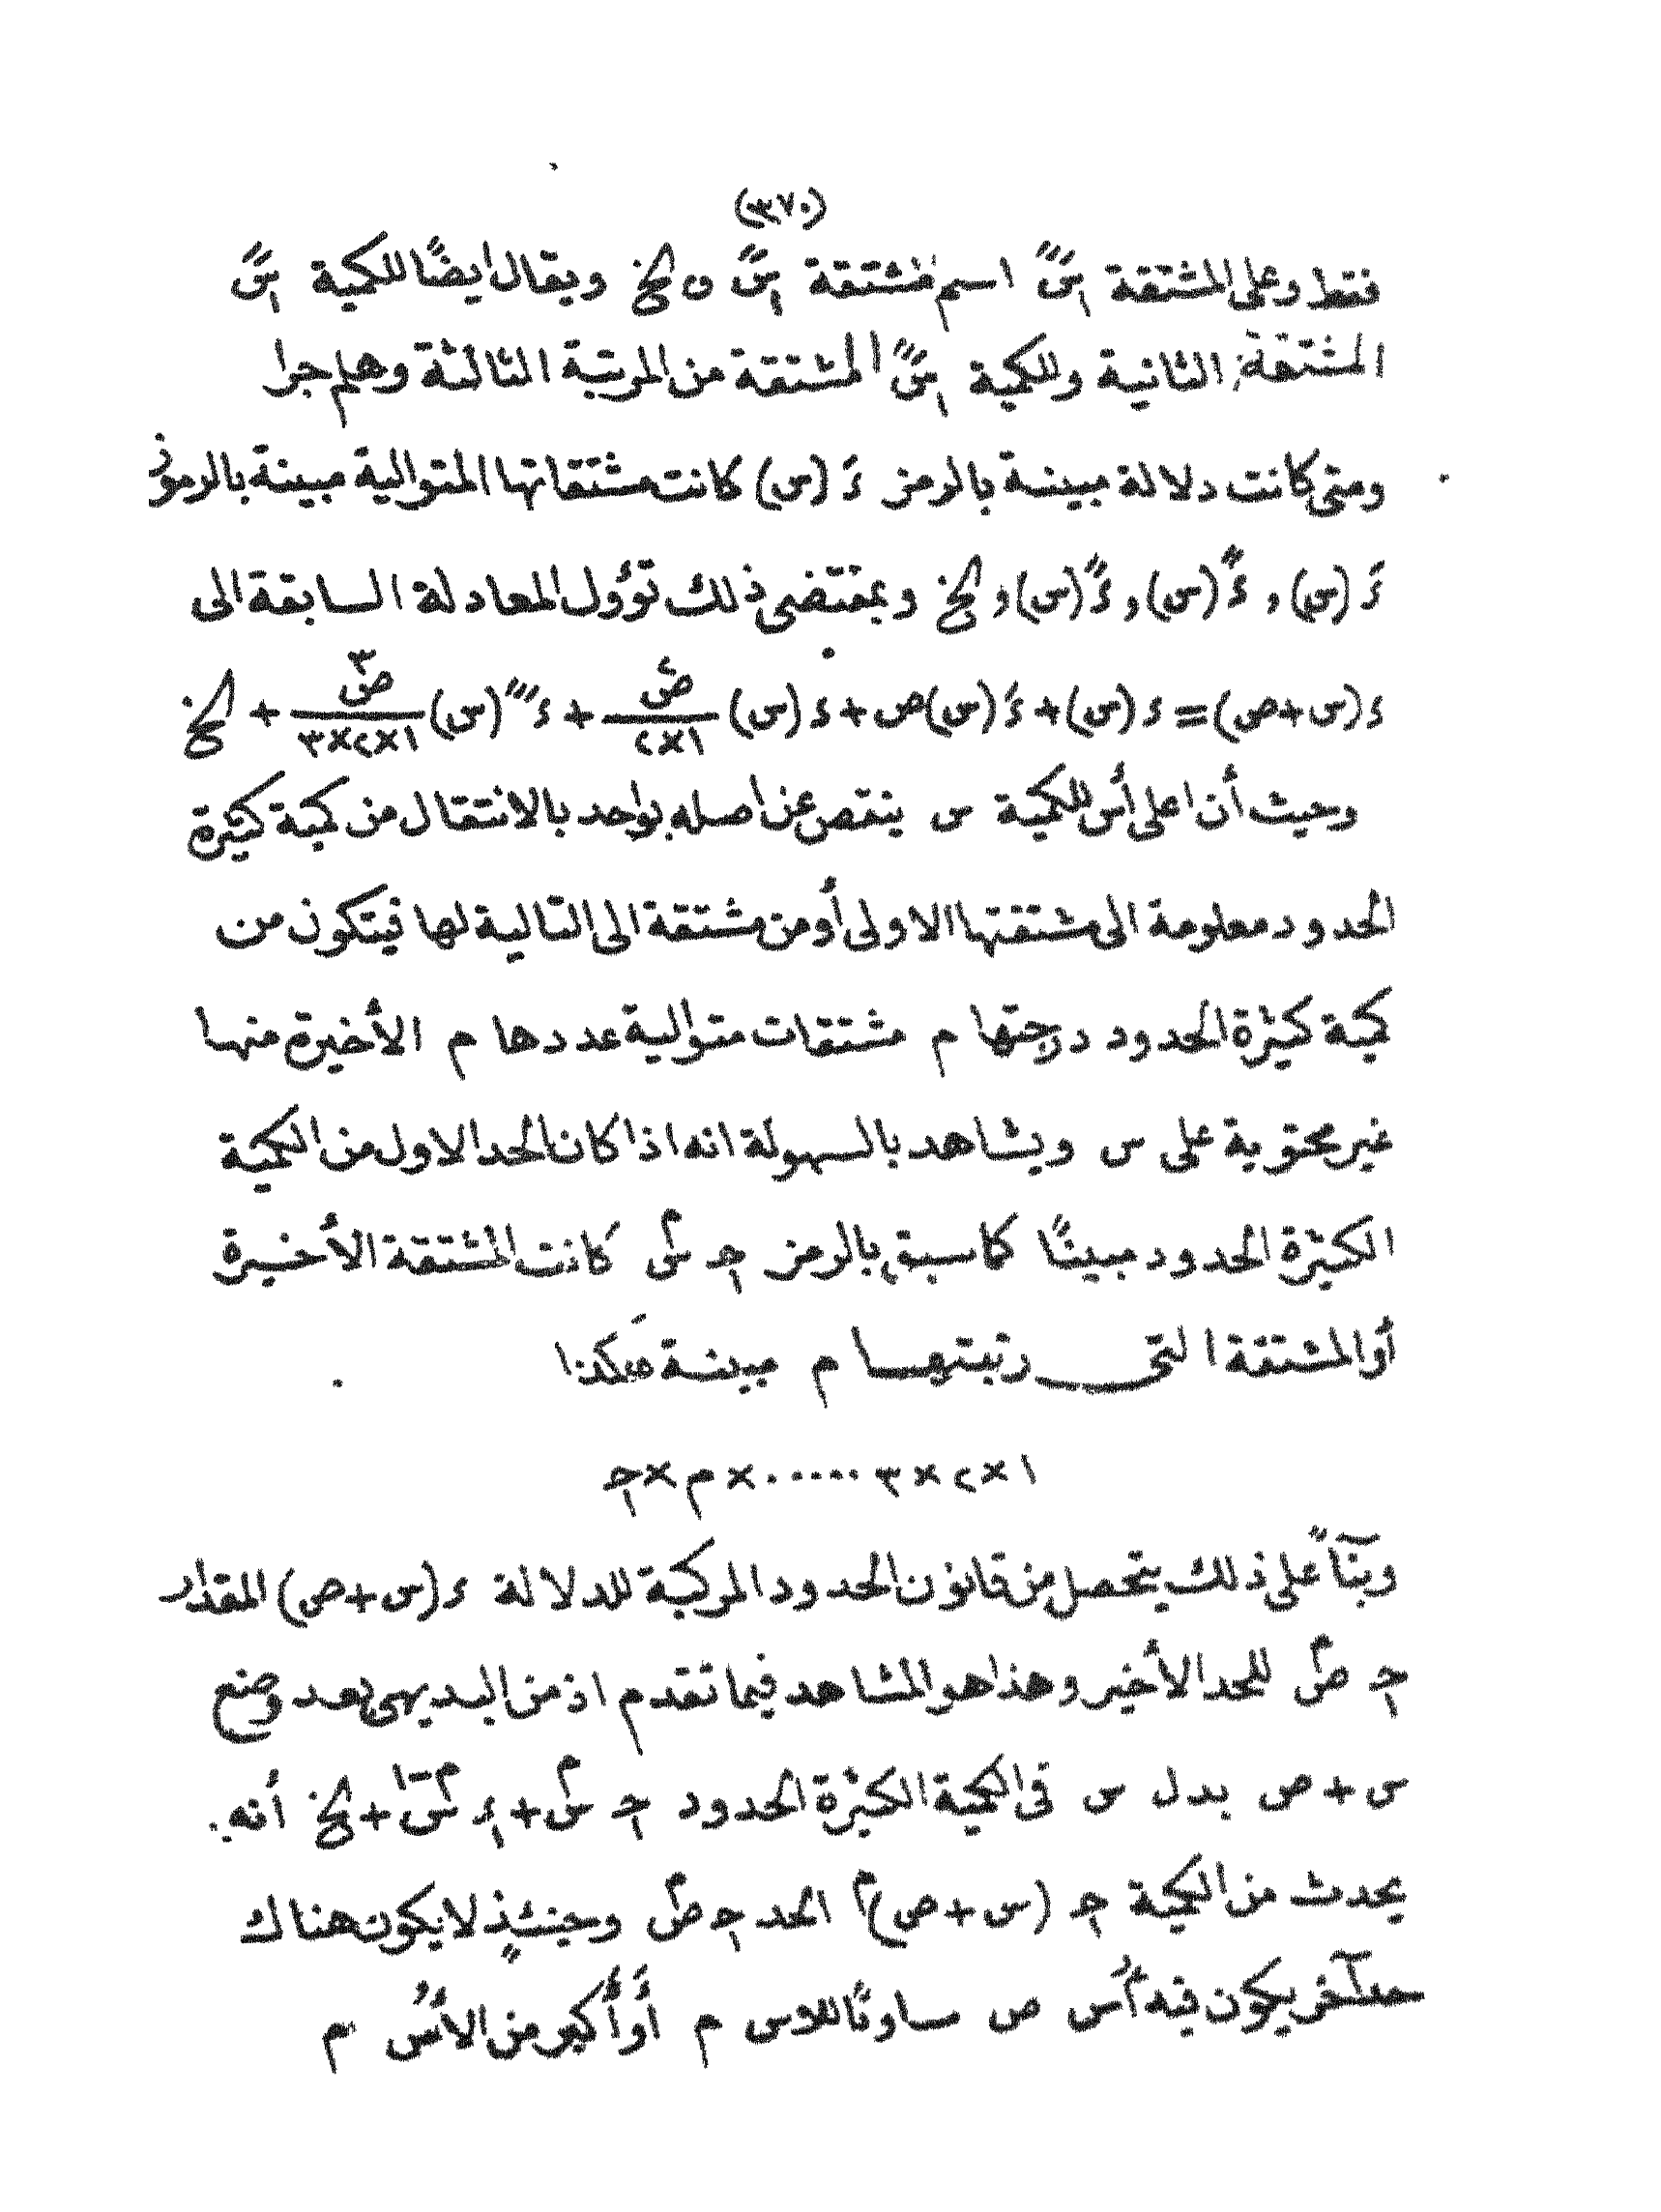 (٣٧٠)
فقط وعلى المشتقة سً اسم مشتقة سً ن الخ ويقال ايضًا للكمية سً
المشتقة الثانية وللكمية سً المشتقة من المرتبة الثالثة وهلم جرا
ومتى كانت دلالة مبينة بالرمز ءَ (س) كانت مشتقاتها المتوالية مبينة بالرموز
ءَ (س) و ءً (س) و ءً (س) و الخ وبمقتضى ذلك تؤول المعادلة السابقة الى
ء (س+ص) = ء (س) + ءَ (س) ص + ء (س) ص٢/١×٢ + ء‴ (س) ص٣/١×٢×٣ + الخ
وحيث أن اعلى أس للكمية س ينقص عن اصله بواحد بالانتقال من كمية كثيرة
الحدود معلومة الى مشتقتها الاولى أو من مشتقة الى التالية لها فيتكون من
كمية كثيرة الحدود درجتها م مشتقات متوالية عددها م الأخيرة منها
غير محتوية على س ويشاهد بالسهولة انه اذا كان الحد الاول من الكمية
الكثيرة الحدود مبينًا كما سبق بالرمز جـ سم كانت المشتقة الأخيرة
أو المشتقة التى رتبتها م مبينة هكذا
١×٢×٣ ٠٠٠٠٠ × م × جـ
وبنآً على ذلك يتحصل من قانون الحدود المركبة للدلالة ء (س+ص) المقدار
جـ صم للحد الأخير وهذا هو المشاهد فيما تقدم اذ من البديهى بعد وضع
س + ص بدل س فى الكمية الكثيرة الحدود جـ سم + ء سم-١ + الخ أنه
يحدث من الكمية جـ (س + ص)م الحد جـ صم وحينئذٍ لا يكون هناك
حد آخر يكون فيه أُس ص مساويًا للاس م أو أكبر من الأسُ م